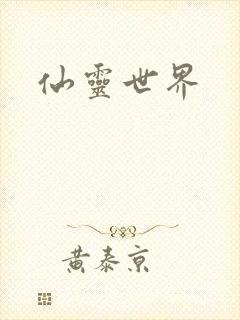 仙靈世界
黃泰京